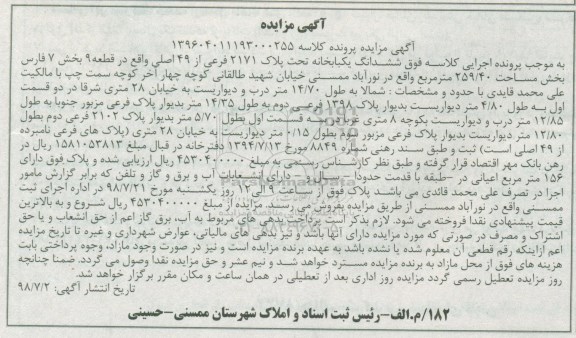 آگهی مزایده
آگهی مزایده پرونده کلاسه ۱۳۹۶۰۴۰۱۱۱۹۳۰۰۰۲۵۵
به موجب پرونده اجرایی کلاسه فوق ششدانگ یکبابخانه تحت پلاک ۲۱۷۱ فرعی از ۴۹ اصلی واقع در قطعه۹ بخش ۷ فارس
بخش مساحت ۲۵۹/۴۰ مترمربع واقع در نورآباد ممسنی خیابان شهید طالقانی کوچه چهار آخر کوچه سمت چپ با مالکیت
علی محمد قایدی با حدود و مشخصات : شمالا به طول ۱۴/۷۰ متر درب و دیواریست به خیابان ۲۸ متری شرقا در دو قسمت
اول به طول ۴/۸۰ متر دیواریست بدیوار پلاک ۱۳۹۸ فرعی دوم به طول ۱۴/۳۵ متر بدیوار پلاک فرعی مزبور جنوبا به طول
۱۲/۸۵ متر درب و دیواریست بکوچه ۸ متری غربا در سه قسمت اول بطول ۵/۷۰ متر بدیوار پلاک ۲۱۰۲ فرعی دوم بطول
۱۲/۸۰ متر دیواریست بدیوار پلاک فرعی مزبور سوم بطول ۰/۱۵ متر دیواریست به خیابان ۲۸ متری (پلاک های فرعی نامبرده
از ۴۹ اصلی است) ثبت و طبق سند رهنی شماره ۸۸۴۹ مورخ ۱۳۹۴/۷/۱۳ دفترخانه در قبال مبلغ ۱۵۸۱۰۵۳۸۱۳ ریال در
رهن بانک مهر اقتصاد قرار گرفته و طبق نظر کارشناس رسمی به مبلغ ۴۵۳۰۴۰۰۰۰۰ ریال ارزیابی شده و پلاک فوق دارای
۱۵۶ متر مربع اعیانی در -طبقه با قدمت حدودا - سال و - دارای انشعابات آب و برق و گاز و تلفن که برابر گزارش مامور
اجرا در تصرف علی محمد قائدی می باشد پلاک فوق از ساعت ۹ الی ۱۲ روز یکشنبه مورخ ۹۸/۷/۲۱ در اداره اجرای ثبت
ممسنی واقع در نورآباد ممسنی از طریق مزایده بفروش می رسد. مزایده از مبلغ ۴۵۳۰۴۰۰۰۰۰ ریال شروع و به بالاترین
قیمت پیشنهادی نقدا فروخته می شود. لازم بذکر است پرداخت بدهی های مربوط به آب، برق گاز اعم از حق انشعاب و یا حق
اشتراک و مصرف در صورتی که مورد مزایده دارای آنها باشد و نیز بدهی های مالیاتی، عوارض شهرداری و غیره تا تاریخ مزایده
اعم ازاینکه رقم قطعی آن معلوم شده یا نشده باشد به عهده برنده مزایده است و نیز در صورت وجود مازاد، وجوه پرداختی بابت
هزینه های فوق از محل مازاد به برنده مزایده مسترد خواهد شد و نیم عشر و حق مزایده نقدا وصول می گردد. ضمنا چنانچه
روز مزایده تعطیل رسمی گردد مزایده روز اداری بعد از تعطیلی در همان ساعت و مکان مقرر برگزار خواهد شد.
تاریخ انتشار آگهی: ۹۸/۷/۲
۱۸۲/م.الف-رئیس ثبت اسناد و املاک شهرستان ممسنی-حسینی